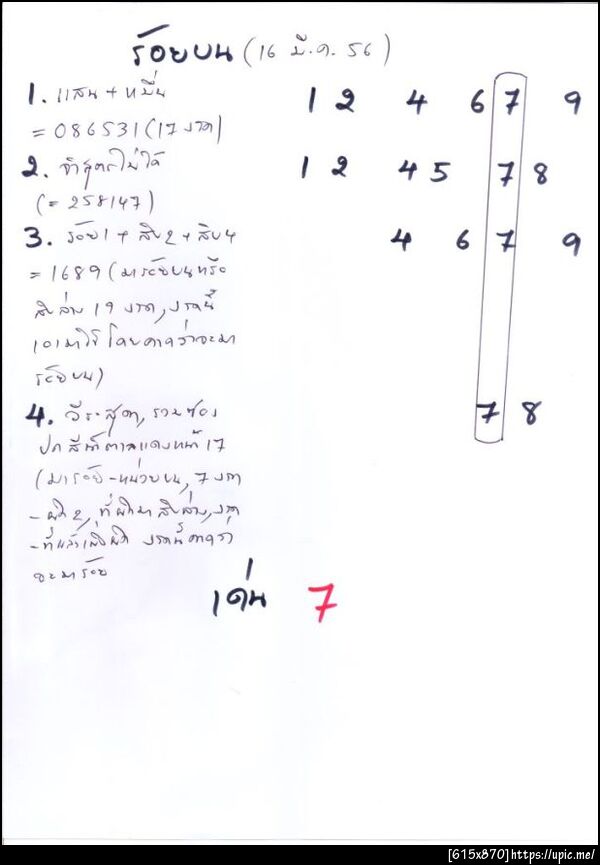 ร้อยบน (16 มี.ค. 56)
1. แสน + หมื่น
1 2 4 6 7 9
= 086531 (17 งวด)
2. จำสูตรไม่ได้
1 2 4 5 7 8
(= 258147)
3. ร้อย1 + สิบ2 + สิบ4
4 6 7 9
= 1689 (มาร้อยบนหรือ
สิบล่าง 19 งวด, งวดนี้
เอามาใช้ โดยคาดว่าจะมา
ร้อยบน)
4. วีระสุดา, รวมซอง
7 8
ปกสีน้ำตาลแดงหน้า 17
(มาร้อย-หน่วยบน, 7 งวด
- ผิด 2, ที่ผิดมาสิบล่าง, งวด
- ที่แล้วเพิ่งผิด งวดนี้คาดว่า
จะมาร้อย
เด่น 7
[615x870]https://upic.me/